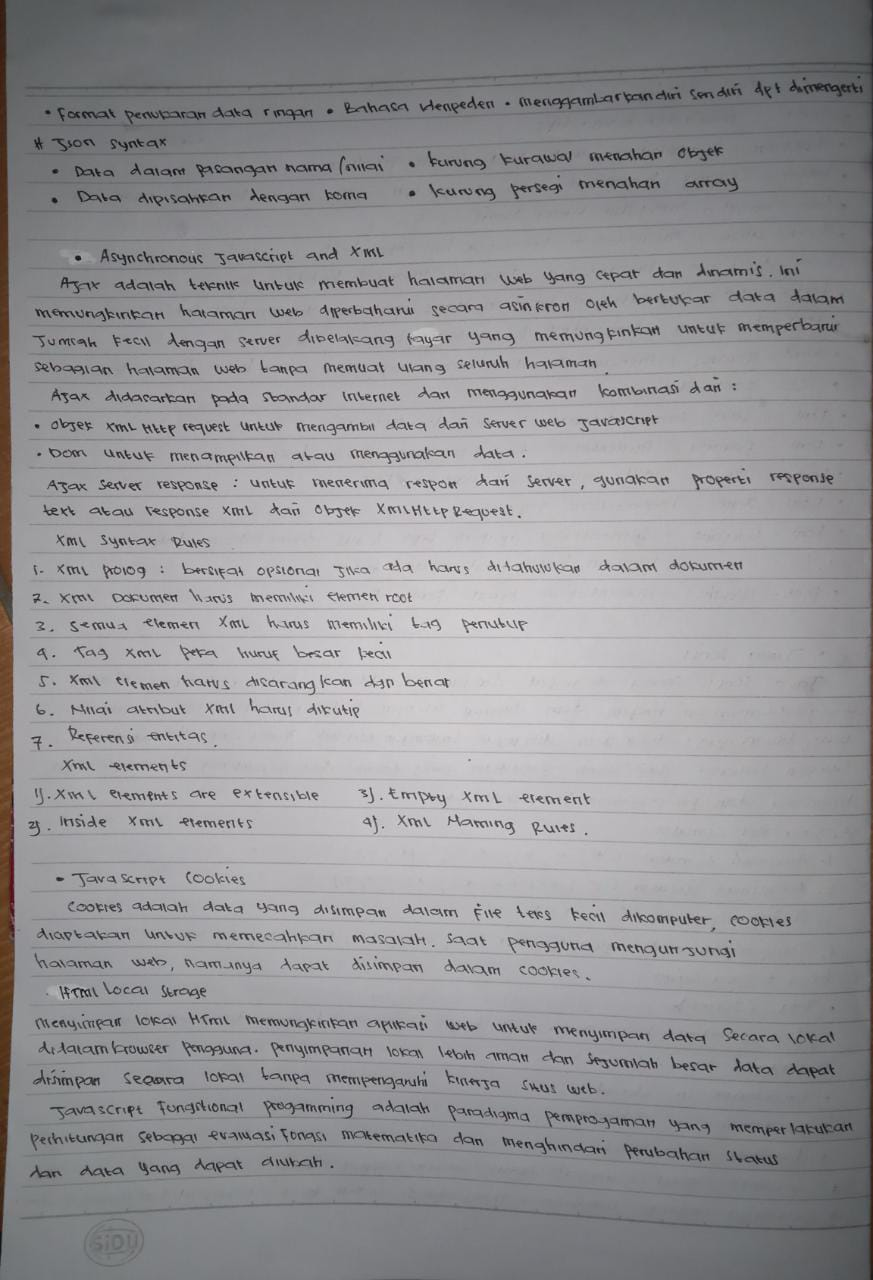 • Format penukaran data ringan • Bahasa Idenpeden • menggambarkan diri sendiri dpt dimengerti
# Json Syntax
• Data dalam pasangan nama/nilai • kurung kurawal menahan objek
• Data dipisahkan dengan koma • kurung persegi menahan array
• Asynchronous Javascript and XML
Ajax adalah teknik untuk membuat halaman web yang cepat dan dinamis. Ini
memungkinkan halaman web diperbaharui secara asinkron oleh bertukar data dalam
Jumlah kecil dengan server dibelakang layar yang memungkinkan untuk memperbarui
sebagian halaman web tanpa memuat ulang seluruh halaman.
Ajax didasarkan pada standar Internet dan menggunakan kombinasi dari :
• Objek XML Http request untuk mengambil data dari server web Javascript
• Dom untuk menampilkan atau menggunakan data.
Ajax Server response : untuk menerima respon dari server, gunakan properti response
text atau response XML dari objek XMLHttpRequest.
XML Syntax Rules
1. XML prolog : bersifat opsional Jika ada harus ditahulukan dalam dokumen
2. XML Dokumen harus memiliki elemen root
3. Semua elemen XML harus memiliki tag penutup
4. Tag XML peka huruf besar kecil
5. XML elemen harus disarangkan dgn benar
6. Nilai atribut XML harus dikutip
7. Referensi entitas.
XML elements
1). XML elements are extensible 3). Empty XML element
2). Inside XML elements 4). XML Naming Rules.
• JavaScript Cookies
Cookies adalah data yang disimpan dalam file teks kecil dikomputer, cookies
diciptakan untuk memecahkan masalah. Saat pengguna mengunjungi
halaman web, namanya dapat disimpan dalam cookies.
. HTML Local Strage
Menyimpan lokal HTML memungkinkan aplikasi web untuk menyimpan data secara lokal
didalam browser pengguna. penyimpanan lokal lebih aman dan sejumlah besar data dapat
disimpan secara lokal tanpa mempengaruhi kinerja situs web.
Javascript Fungstional progamming adalah paradigma pemprogaman yang memperlakukan
perhitungan sebagai evaluasi fungsi matematika dan menghindari perubahan status
dan data yang dapat diubah.
SiDU